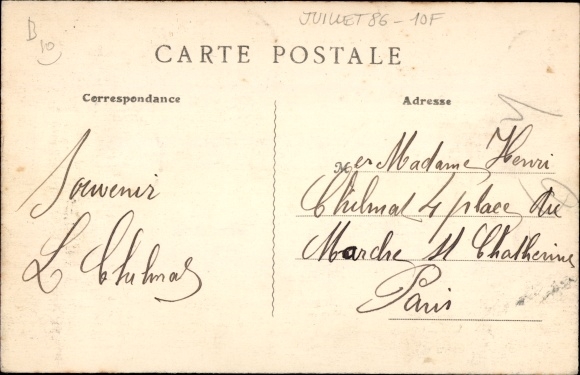 JUILLET 86 - 10F
B
10
CARTE POSTALE
Correspondance
Adresse
Souvenir
L Thilmas
Madame Henri
4 place du
St Chatherine
Paris